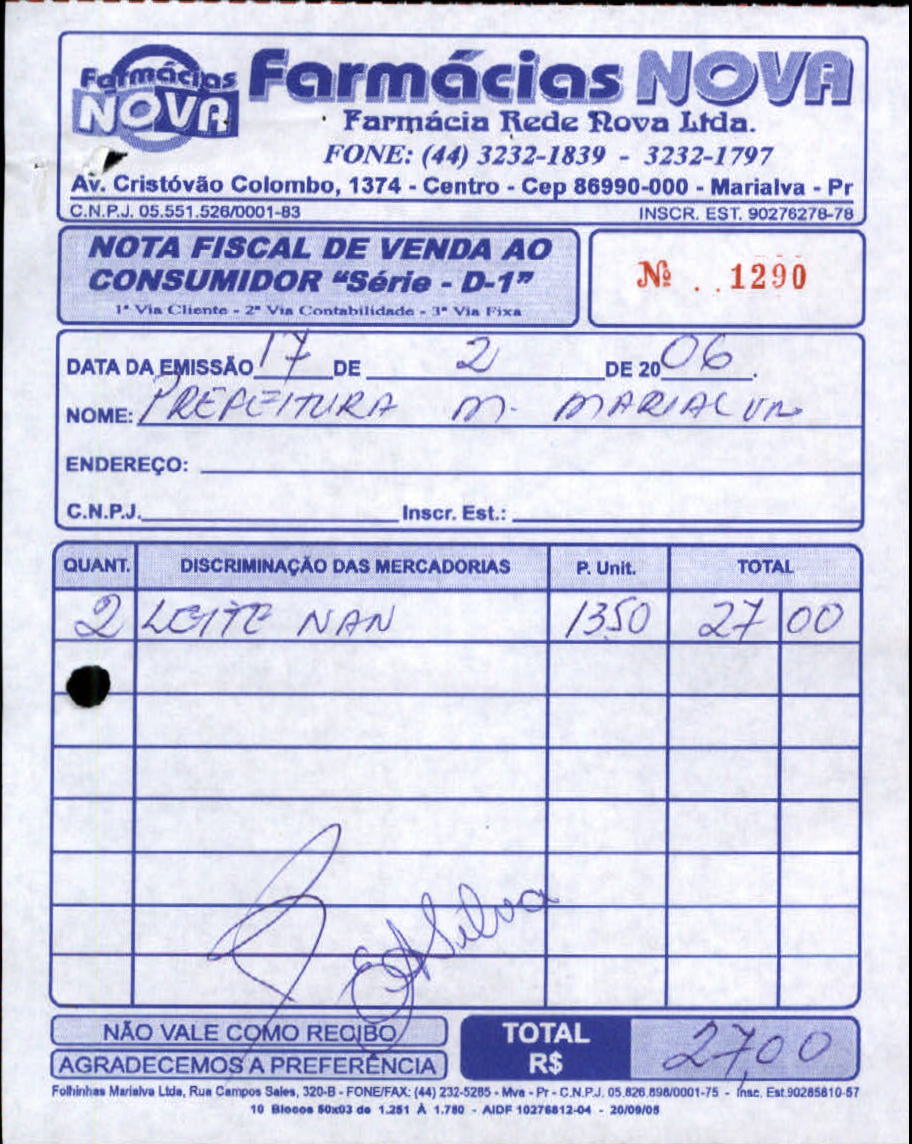 Farmácias NOVA
Farmácias NOVA
Farmácia Rede Nova Ltda.
FONE: (44) 3232-1839 - 3232-1797
Av. Cristóvão Colombo, 1374 - Centro - Cep 86990-000 - Marialva - Pr
C.N.P.J. 05.551.526/0001-83 INSCR. EST. 90276278-78
NOTA FISCAL DE VENDA AO
CONSUMIDOR "Série - D-1"
1ª Via Cliente - 2ª Via Contabilidade - 3ª Via Fixa
Nº 1290
DATA DA EMISSÃO 17 DE 2 DE 2006.
NOME: PREFEITURA M. MARIALVA
ENDEREÇO:
C.N.P.J. Inscr. Est.:
QUANT. DISCRIMINAÇÃO DAS MERCADORIAS P. Unit. TOTAL
2 LEITE NAN 1350 27 00
Silva
NÃO VALE COMO RECIBO
AGRADECEMOS A PREFERÊNCIA
TOTAL R$ 27,00
Folhinhas Marialva Ltda, Rua Campos Sales, 320-B - FONE/FAX: (44) 232-5285 - Mva - Pr - C.N.P.J. 05.826.898/0001-75 - Insc. Est.90285810-57
10 Blocos 50x03 de 1.251 À 1.780 - AIDF 10276812-04 - 20/09/05